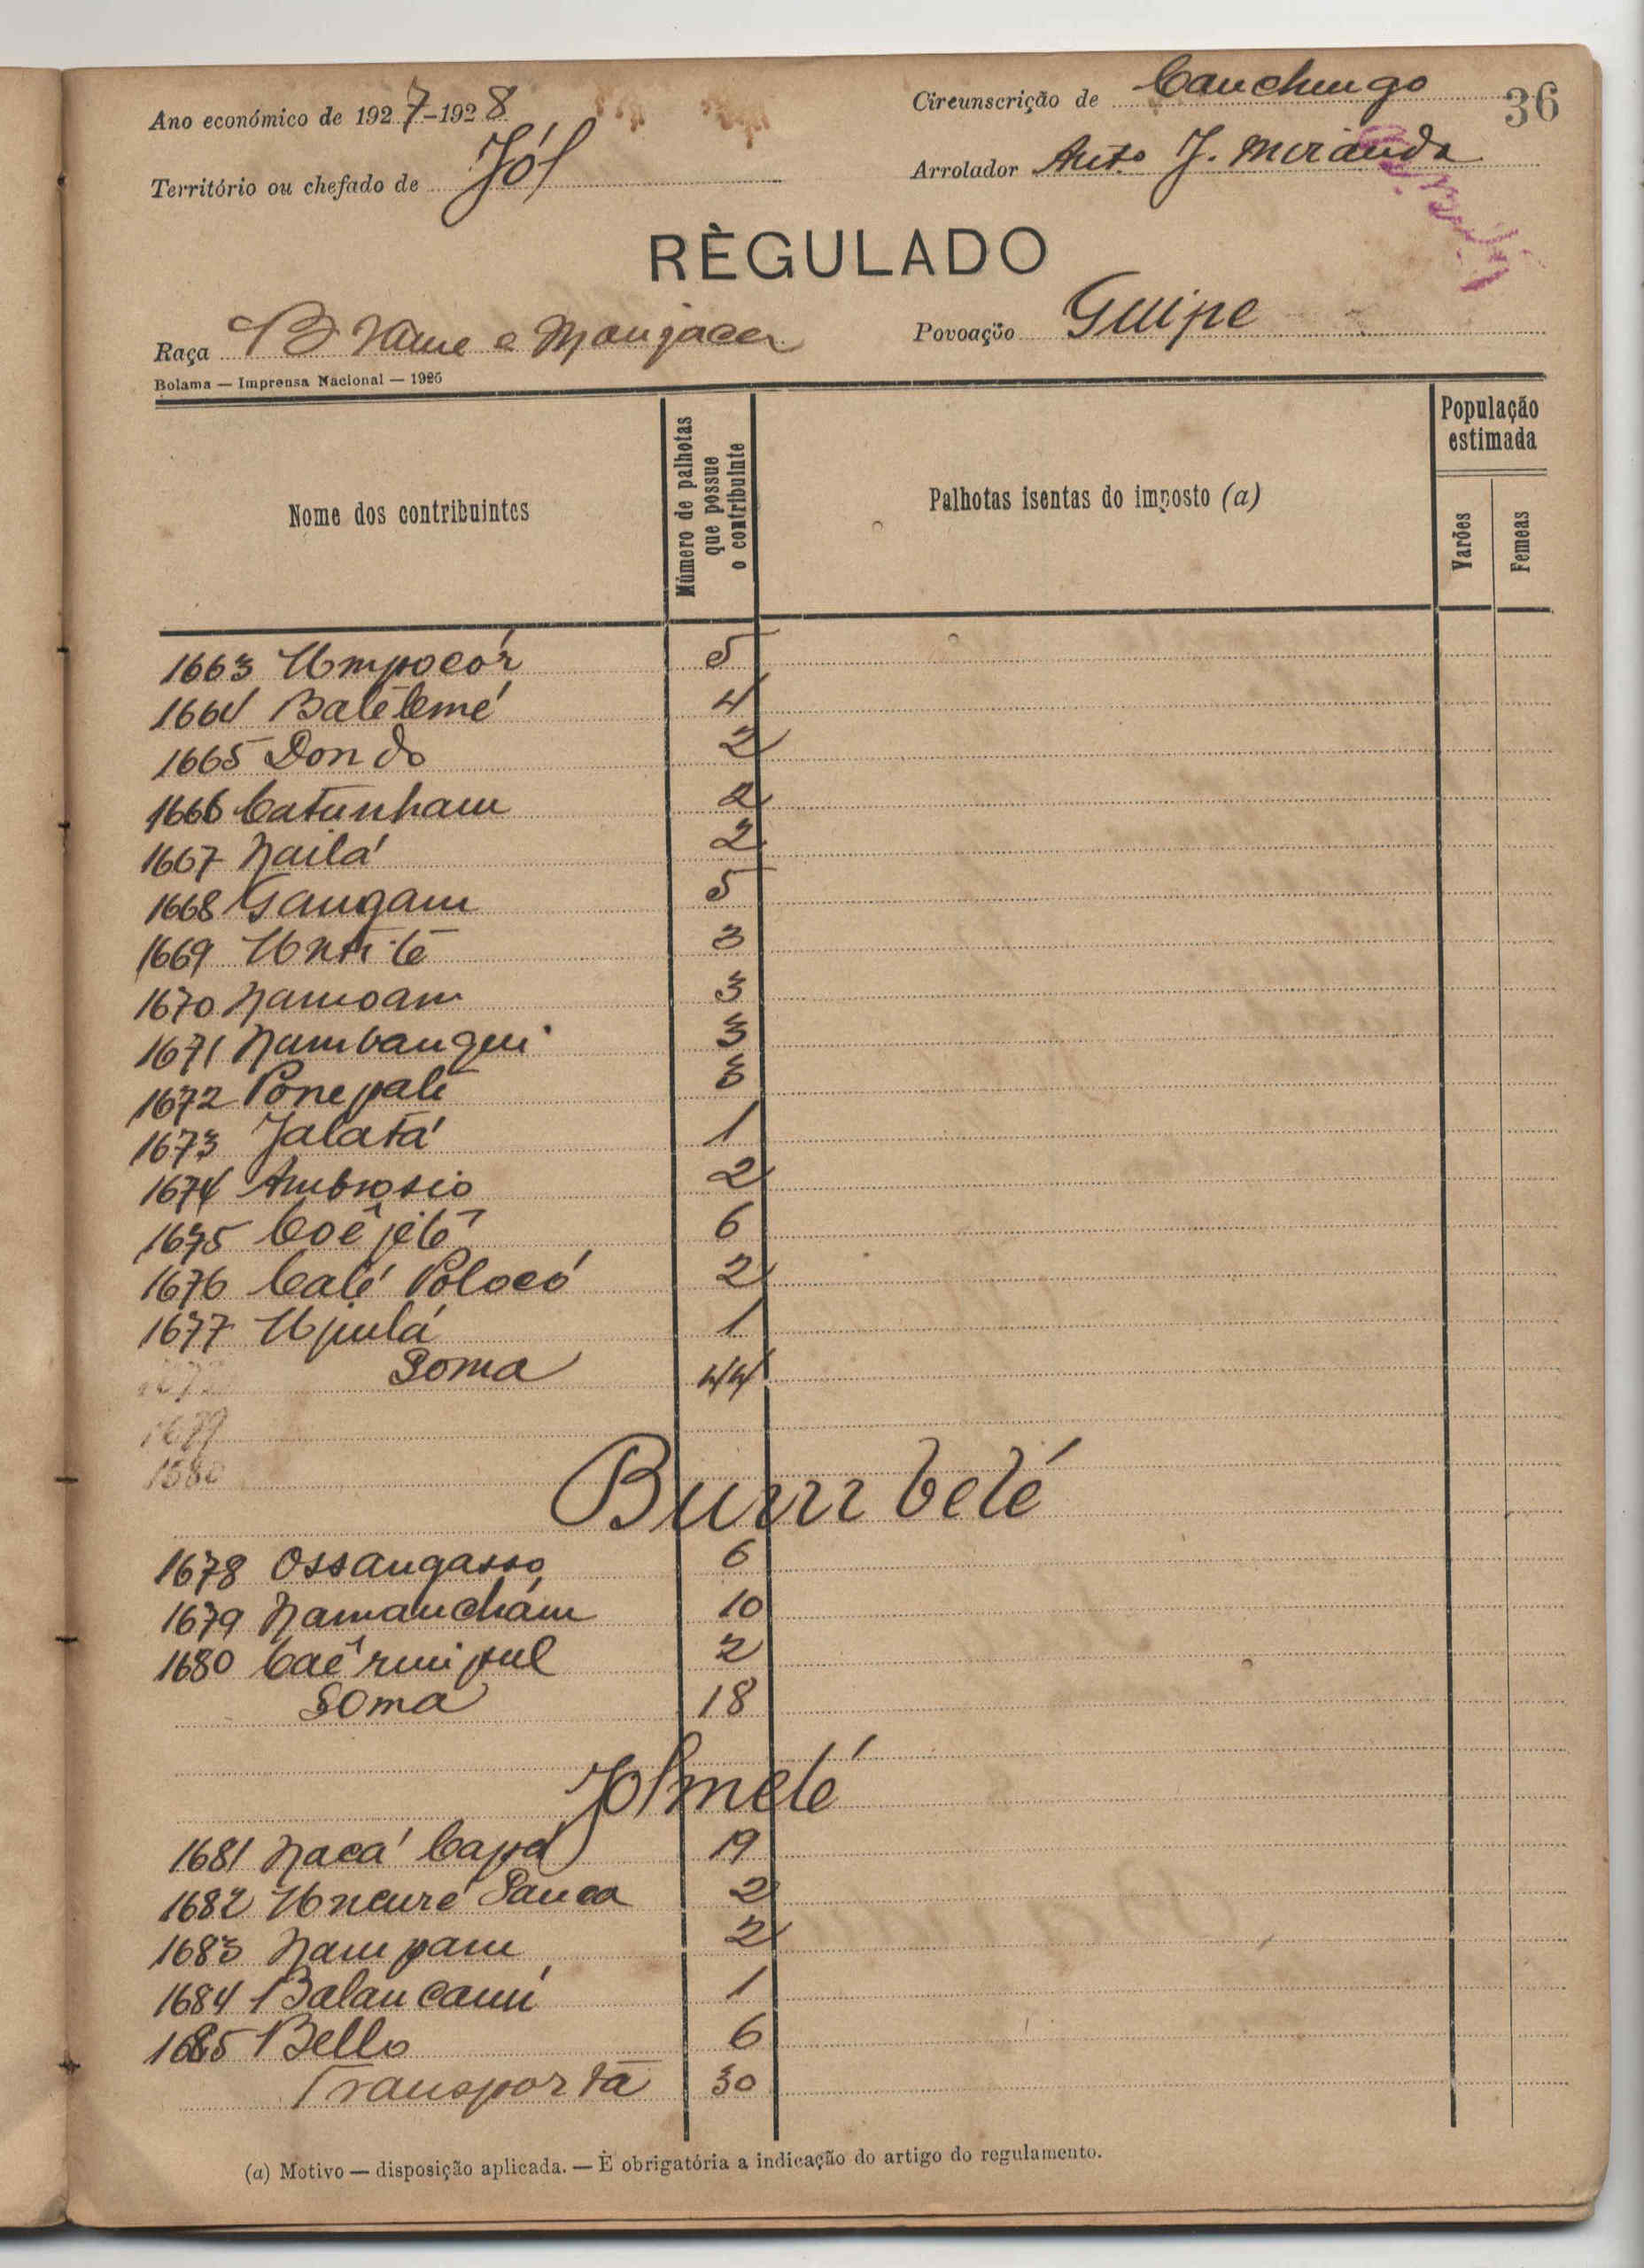 Ano económico de 1927-1928
Circunscrição de Canchungo
36
Território ou chefado de Jól
Arrolador Anto J. Miranda
RÈGULADO
Raça Brame e Manjaca
Povoação Guipe
Bolama — Imprensa Nacional — 1926
Nome dos contribuintes
Número de palhotas que possue o contribuinte
Palhotas isentas do imposto (a)
População estimada
Varões
Femeas
1663 Umpocór 5
1664 Batêlemé 4
1665 Dondo 2
1666 Catunham 2
1667 Nailá 2
1668 Gangam 5
1669 Untitê 3
1670 Namoam 3
1671 Nambangui 3
1672 Ponepalé 3
1673 Jalatá 1
1674 Ambrosio 2
1675 Coêjetê 6
1676 Calé Polocó 2
1677 Upulá 1
Soma 44
1679
1680
Burrbelé
1678 Ossangasso 6
1679 Namanchám 10
1680 Caêruipul 2
Soma 18
Jolmeté
1681 Nacá Capá 19
1682 Uncuré Sanca 2
1683 Nampam 2
1684 Balancamí 1
1685 Bello 6
Transporta 30
(a) Motivo — disposição aplicada. — È obrigatória a indicação do artigo do regulamento.